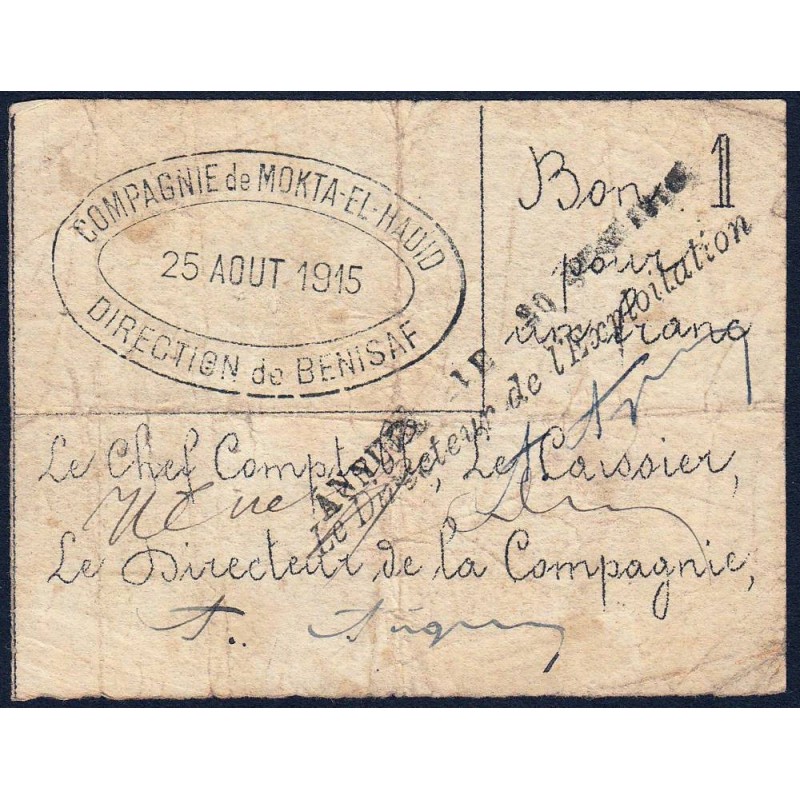 COMPAGNIE de MOKTA-EL-HADID
25 AOUT 1915
DIRECTION de BENISAF
Bon 1
pour
un franc
ANNULÉ LE 20
Le Directeur de l'Exploitation
Le Chef Comptable, Le Caissier,
Le Directeur de la Compagnie,